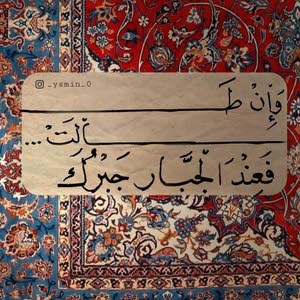 _ysmin_0
وَإِنْ طَـ
ـالَتْ...
فَعِنْدَ الْجَبَّارِ جَبْرُكَ